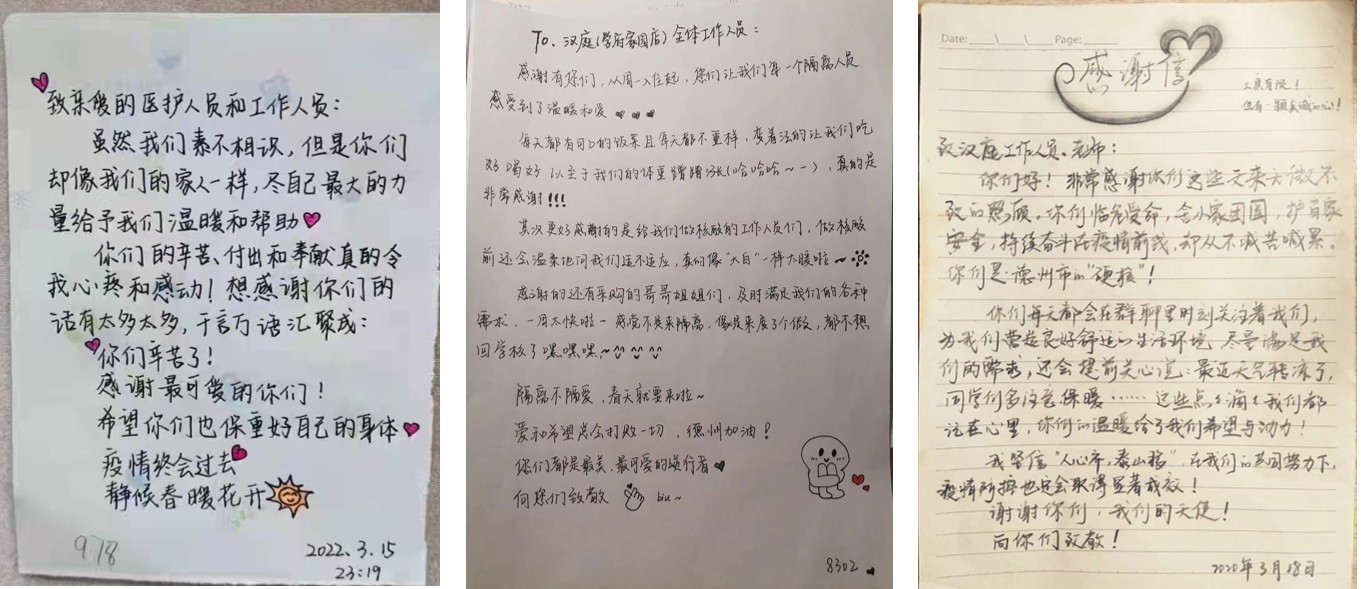 致亲爱的医护人员和工作人员：
虽然我们素不相识，但是你们
却像我们的家人一样，尽自己最大的力
量给予我们温暖和帮助
你们的辛苦、付出和奉献真的令
我心疼和感动！想感谢你们的
话有太多太多，千言万语汇聚成：
你们辛苦了！
感谢最可爱的你们！
希望你们也保重好自己的身体
疫情终会过去
静候春暖花开
978
2022.3.15
23:19
To、汉庭(学府家园店)全体工作人员：
感谢有你们，从周一入住起，您们让我们每一个隔离人员
感受到了温暖和爱
每天都有可口的饭菜且每天都不重样，变着法的让我们吃
好喝好 以至于我们的体重蹭蹭涨(哈哈哈~~)，真的是
非常感谢!!!
其次更好感谢的是给我们做核酸的工作人员们，做核酸
前还会温柔地问我们适不适应，真的像"大白"一样太暖啦~
感谢的还有采购的哥哥姐姐们，及时满足我们的各种
需求，一周太快啦~感觉不是来隔离，像是来度了个假，都不想
回学校了嘿嘿嘿~
隔离不隔爱，春天就要来啦~
爱和希望总会打败一切，德州加油！
你们都是最美、最可爱的逆行者
向您们致敬 biu~
8302
Date: \ \ Page:
感谢信
工具有限！
但有一颗真诚的心！
致汉庭工作人员、老师：
你们好！非常感谢你们这些天来无微不
致的照顾。你们临危受命，舍小家团圆，护百家
安全，持续奋斗在疫情前线，却从不喊苦喊累。
你们是德州市的"硬核"！
你们每天都会在群聊里时刻关注着我们，
为我们营造良好舒适的生活环境，尽量满足我
们的需求，还会提前关心说：最近天气转凉了，
同学们多注意保暖……这些点点滴滴我们都
记在心里，你们的温暖给了我们希望与动力！
我坚信"人心齐，泰山移"，在我们的共同努力下，
疫情防控也定会取得显著成效！
谢谢你们，我们的天使！
向你们致敬！
2020年3月18日